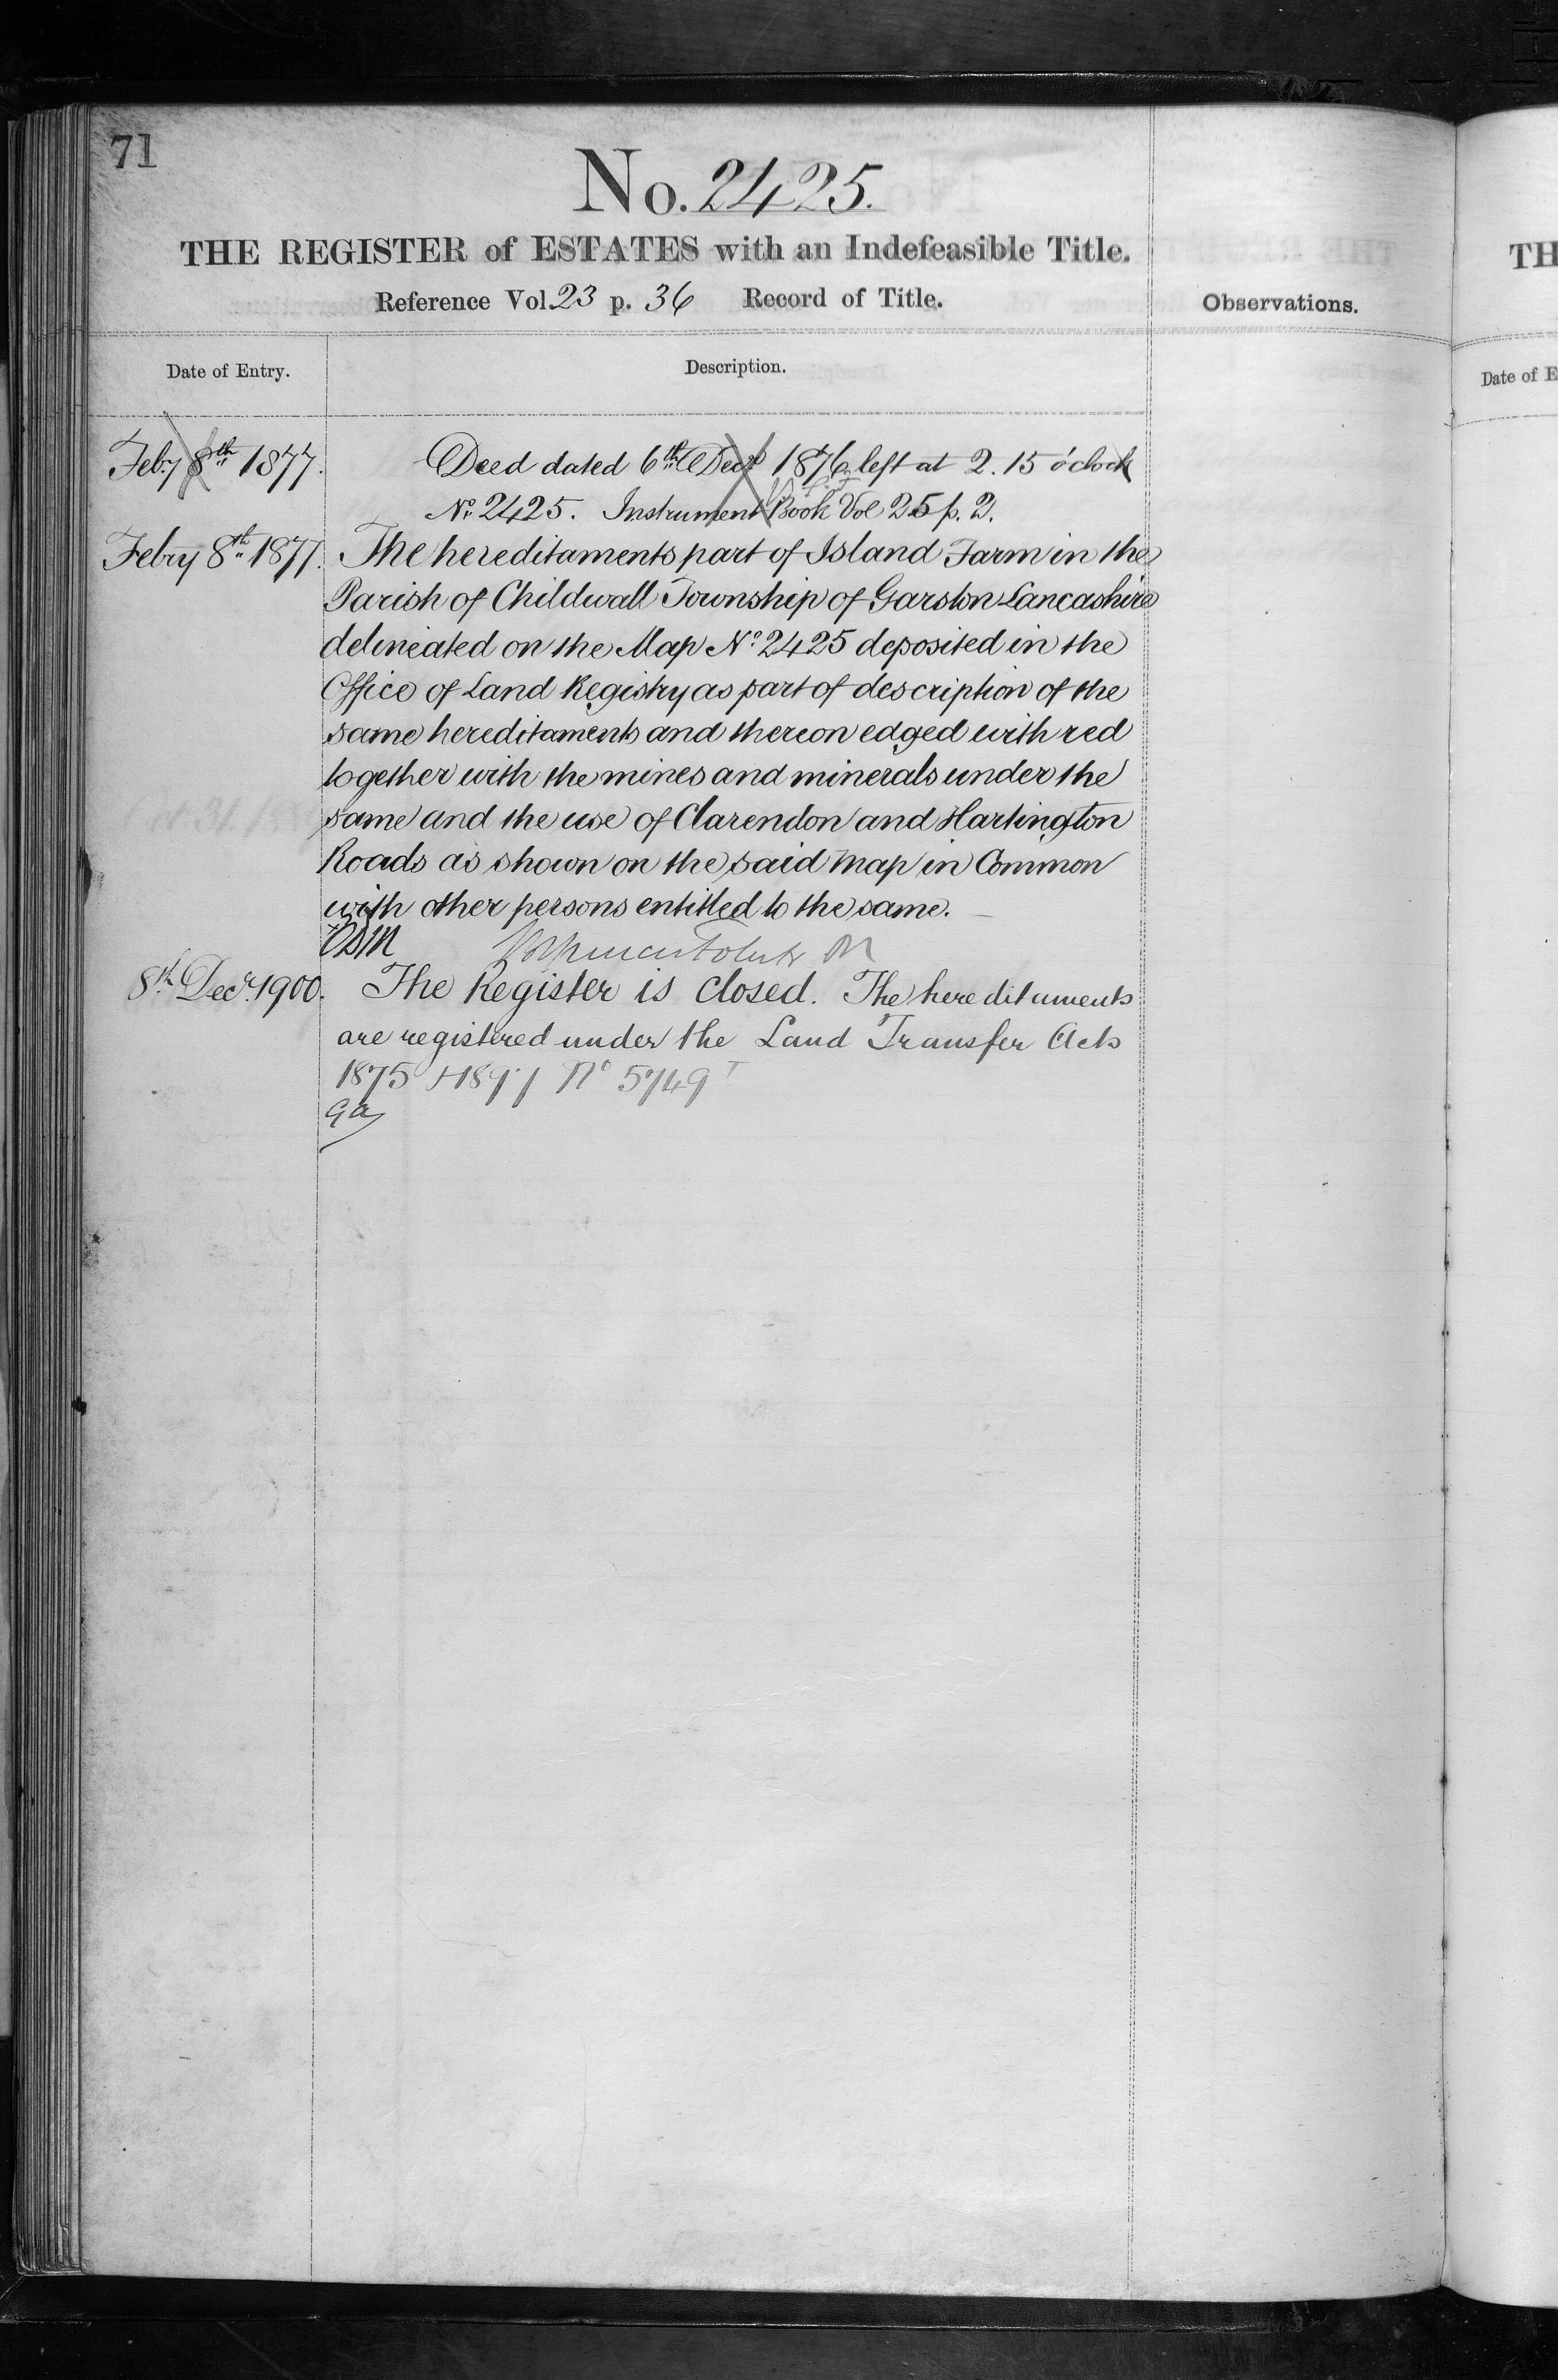 71
No. 2425.
THE REGISTER of ESTATES with an Indefeasible Title.
Reference Vol 23 p. 36 Record of Title.
Observations.
Date of Entry.
Description.
Feby 8th 1877.
Deed dated 6th Decr 1876 left at 2.15 o'clock
No. 2425. Instrument Book Vol 25 p. 2.
Febry 8th 1877. The hereditaments part of Island Farm in the
Parish of Childwall Township of Garston Lancashire
delineated on the Map No 2425 deposited in the
Office of Land Registry as part of description of the
same hereditaments and thereon edged with red
together with the mines and minerals under the
same and the use of Clarendon and Hartington
Roads as shown on the said Map in Common
with other persons entitled to the same.
8th Decr. 1900. The Register is closed. The hereditaments
are registered under the Land Transfer Acts
1875 + 1897 No 5749
GA
TH
Date of E